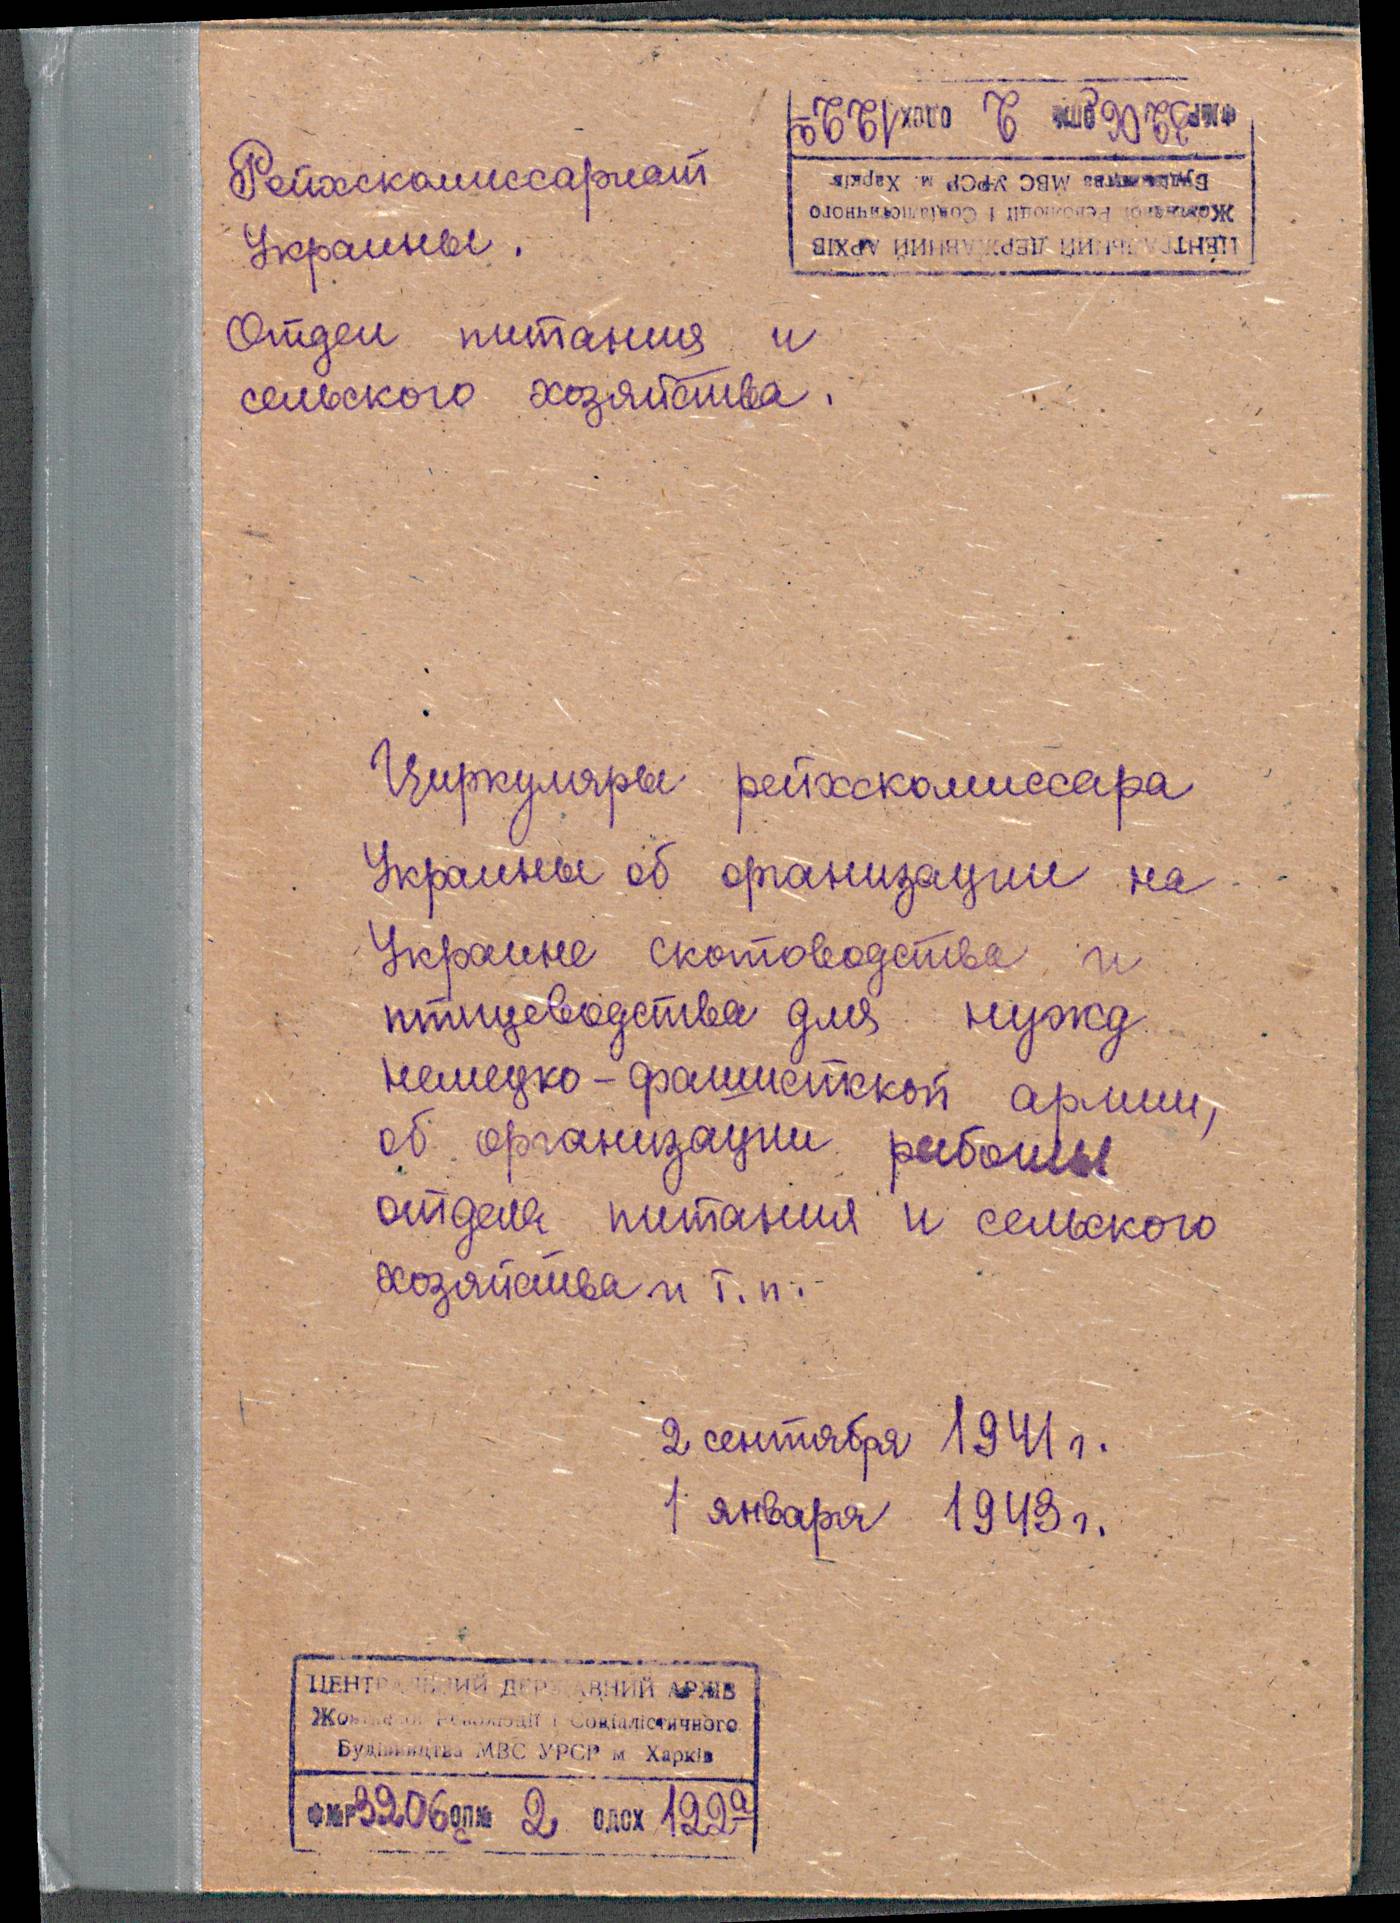 Ф№Р 3206 ОП№ 2 ОДСХ 122а
ЦЕНТРАЛЬНИЙ ДЕРЖАВНИЙ АРХІВ
Жовтневої Революції і Соціалістичного
Будівництва МВС УРСР м. Харків
Рейхскомиссариат
Украины.
Отдел питания и
сельского хозяйства.
Циркуляры рейхскомиссара
Украины об организации на
Украине скотоводства и
птицеводства для нужд
немецко-фашисткой армии,
об организации работы
отдела питания и сельского
хозяйства и т.п.
2 сентября 1941 г.
1 января 1943 г.
ЦЕНТРАЛЬНИЙ ДЕРЖАВНИЙ АРХІВ
Жовтневої Революції і Соціалістичного
Будівництва МВС УРСР м Харків
Ф№Р 3206 ОП№ 2 ОДСХ 122а